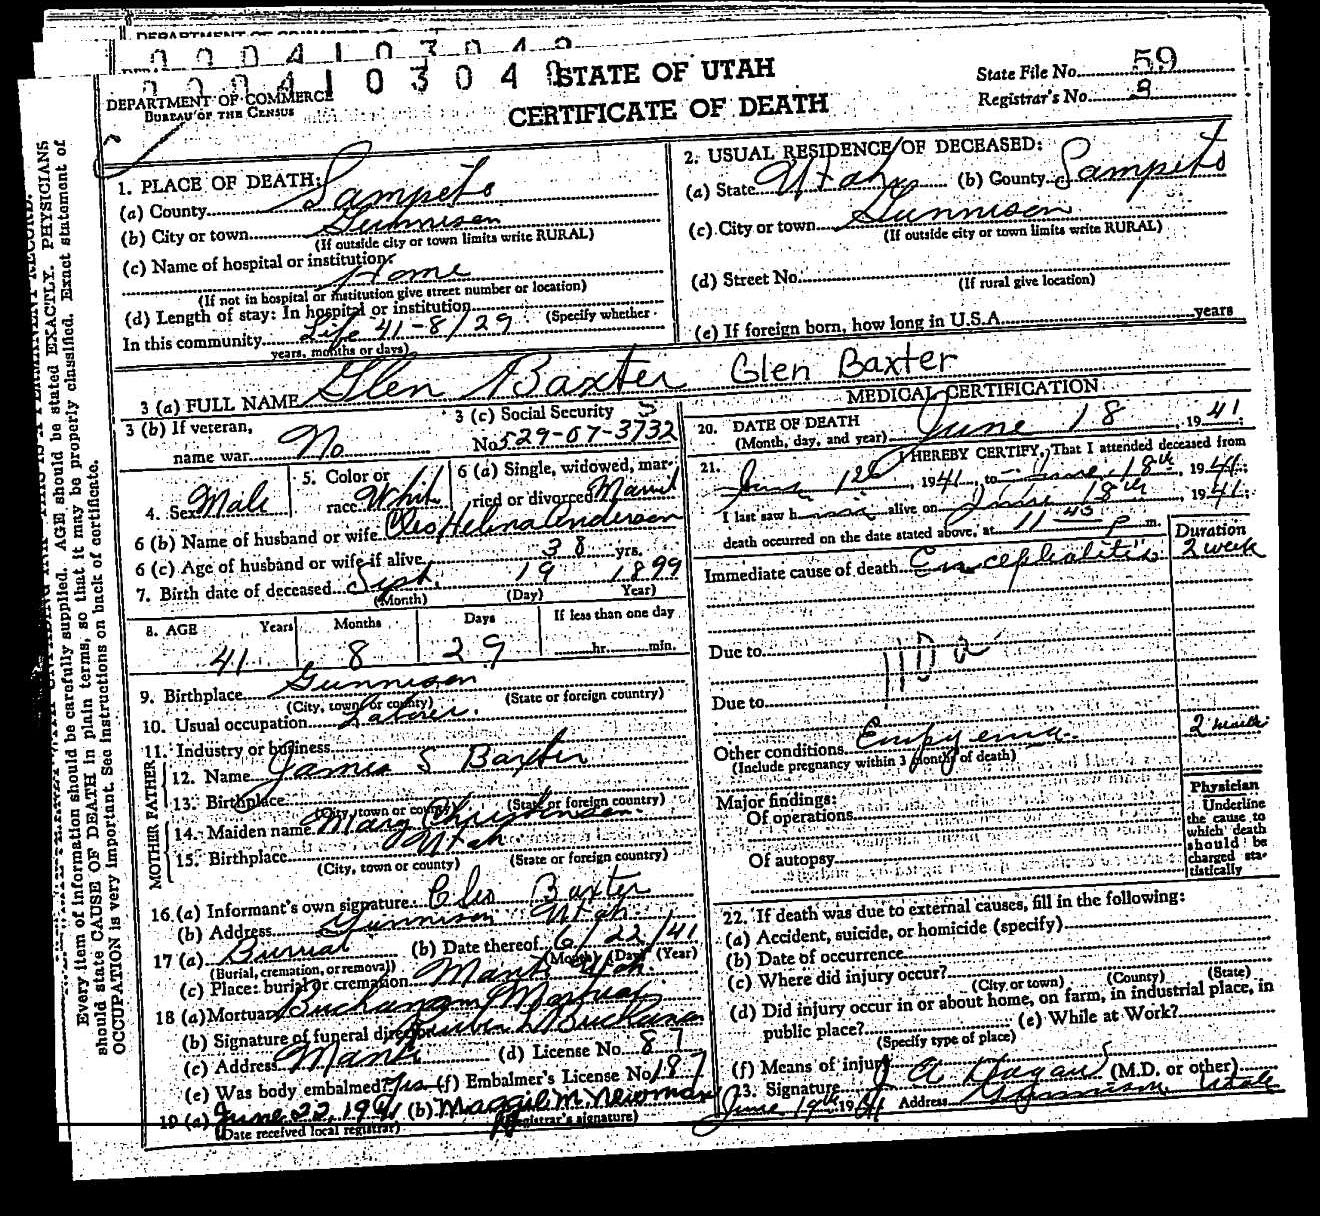 0004103049
STATE OF UTAH
CERTIFICATE OF DEATH
DEPARTMENT OF COMMERCE
BUREAU OF THE CENSUS
State File No. 59
Registrar's No. 3
1. PLACE OF DEATH:
(a) County Sanpete
(b) City or town Gunnison
(If outside city or town limits write RURAL)
(c) Name of hospital or institution:
Home
(If not in hospital or institution give street number or location)
(d) Length of stay: In hospital or institution
(Specify whether
In this community Life 41-8/29
years, months or days)
2. USUAL RESIDENCE OF DECEASED:
(a) State Utah (b) County Sanpete
(c) City or town Gunnison
(If outside city or town limits write RURAL)
(d) Street No.
(If rural give location)
(e) If foreign born, how long in U.S.A. years
3 (a) FULL NAME Glen Baxter Glen Baxter
3 (b) If veteran,
name war No
3 (c) Social Security
No. 529-07-3732
4. Sex Male
5. Color or
race White
6 (a) Single, widowed, mar-
ried or divorced Married
6 (b) Name of husband or wife Cleo Helena Anderson
6 (c) Age of husband or wife if alive 38 yrs.
7. Birth date of deceased Sept. 19 1899
(Month) (Day) Year)
8. AGE Years Months Days If less than one day
41 8 29 hr. min.
9. Birthplace Gunnison
(City, town or county) (State or foreign country)
10. Usual occupation Laborer.
11. Industry or business
FATHER
12. Name James S Baxter
13. Birthplace
(City, town or county) (State or foreign country)
MOTHER
14. Maiden name Mary Christensen
15. Birthplace Utah
(City, town or county) (State or foreign country)
16. (a) Informant's own signature Cleo Baxter
(b) Address Gunnison Utah.
17 (a) Burial (b) Date thereof 6/22/41
(Burial, cremation, or removal) (Month) (Day) (Year)
(c) Place: burial or cremation Manti Utah.
18 (a) Mortuary Buchanan Mortuary
(b) Signature of funeral director Ruben L Buchanan
(c) Address Manti (d) License No. 87
(e) Was body embalmed? Yes (f) Embalmer's License No. 187
19 (a) June 22, 1941 (b) Maggie M. Newman
(Date received local registrar) Registrar's signature)
MEDICAL CERTIFICATION
20. DATE OF DEATH
(Month, day, and year) June 18, 1941
21. I HEREBY CERTIFY, That I attended deceased from
June 12th, 1941, to June 18th, 1941;
I last saw him alive on June 18th 1941;
death occurred on the date stated above, at 11 45 P m.
Duration
Immediate cause of death Encephalitis 2 week
Due to
Due to
Other conditions Empyema. 2 weeks
(Include pregnancy within 3 months of death)
Major findings:
Of operations
Of autopsy
Physician
Underline
the cause to
which death
should be
charged sta-
tistically
22. If death was due to external causes, fill in the following:
(a) Accident, suicide, or homicide (specify)
(b) Date of occurrence
(c) Where did injury occur?
(City or town) (County) (State)
(d) Did injury occur in or about home, on farm, in industrial place, in
public place? (e) While at Work?
(Specify type of place)
(f) Means of injury
23. Signature J A Hagan (M.D. or other)
June 19th 1941 Address Gunnison Utah
Every item of information should be carefully supplied. AGE should be stated EXACTLY. PHYSICIANS
should state CAUSE OF DEATH in plain terms, so that it may be properly classified. Exact statement of
OCCUPATION is very important. See instructions on back of certificate.